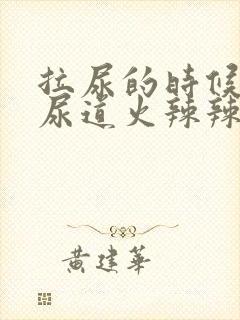 拉尿的時候
尿道火辣辣
黄建華